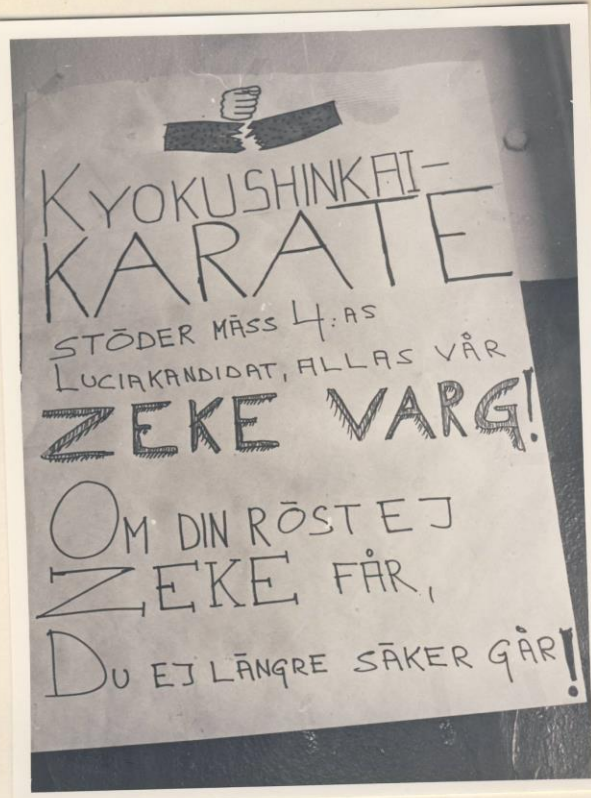 KYOKUSHINKAI-
KARATE
STÖDER MÄSS 4:AS
LUCIAKANDIDAT, ALLAS VÅR
ZEKE VARG!
OM DIN RÖST EJ
ZEKE FÅR,
DU EJ LÄNGRE SÄKER GÅR!